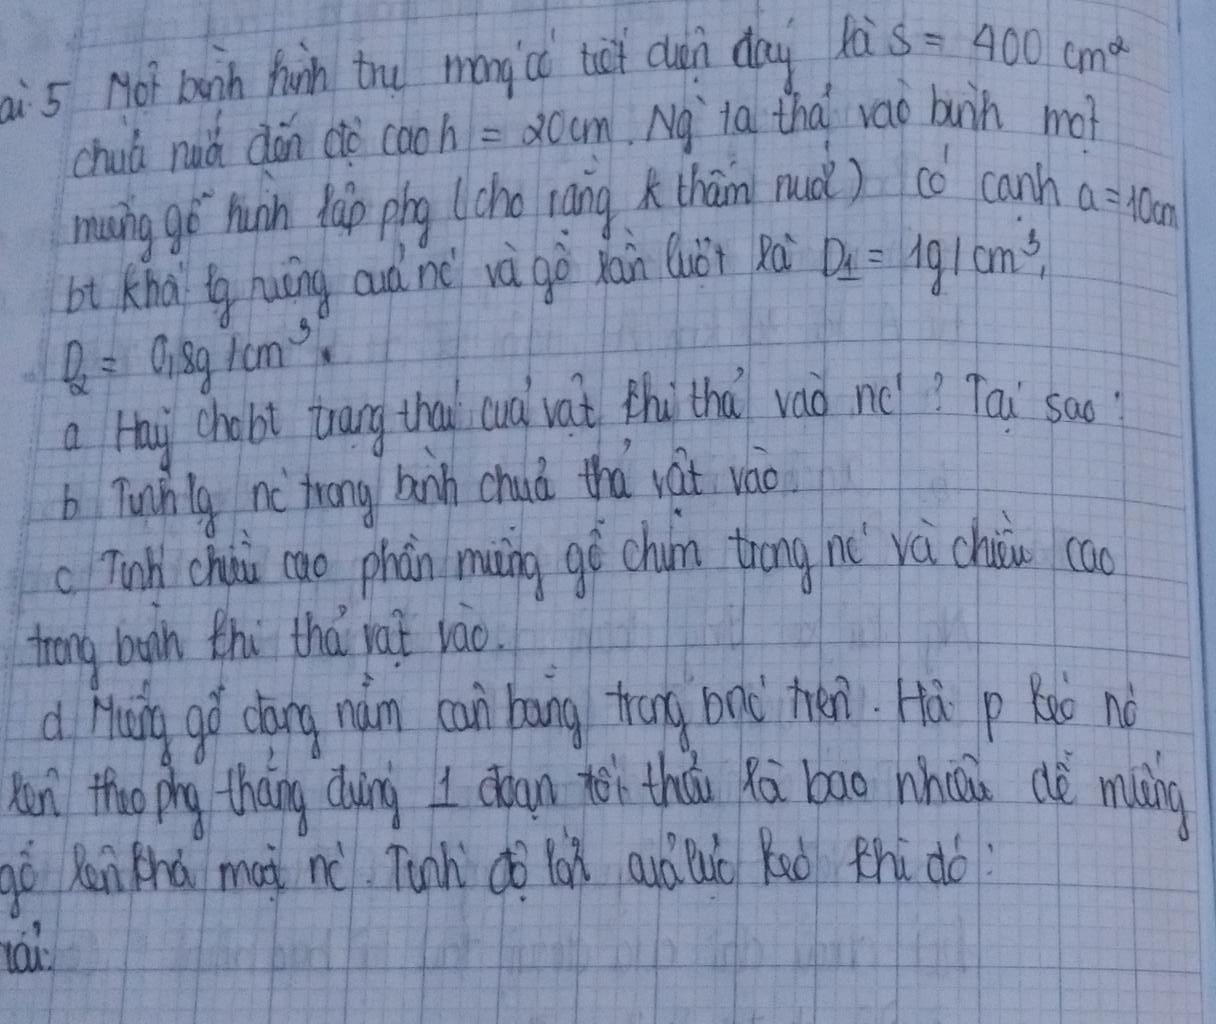 ài 5 Một bình hình trụ mỏng có tiết diện đáy là S = 400 cm²
chứa nước đến độ cao h = 20cm. Ng ta thả vào bình một
miếng gỗ hình lập phg (cho rằng k thấm nước) có cạnh a = 10cm
bt khối lg riêng của nc và gỗ lần lượt là D₁ = 1g/cm³,
D₂ = 0,8g/cm³.
a Hãy cho bt trạng thái của vật khi thả vào nc? Tại sao?
b Tính lg nc trong bình chưa thả vật vào.
c Tính chiều cao phần miếng gỗ chìm trong nc và chiều cao
trong bình khi thả vật vào.
d Miếng gỗ đang nằm cân bằng trong bnc trên. Hỏi p kéo nó
lên theo phg thẳng đứng 1 đoạn tối thiểu là bao nhiêu để miếng
gỗ lên khỏi mặt nc. Tính độ lớn của lực kéo khi đó: